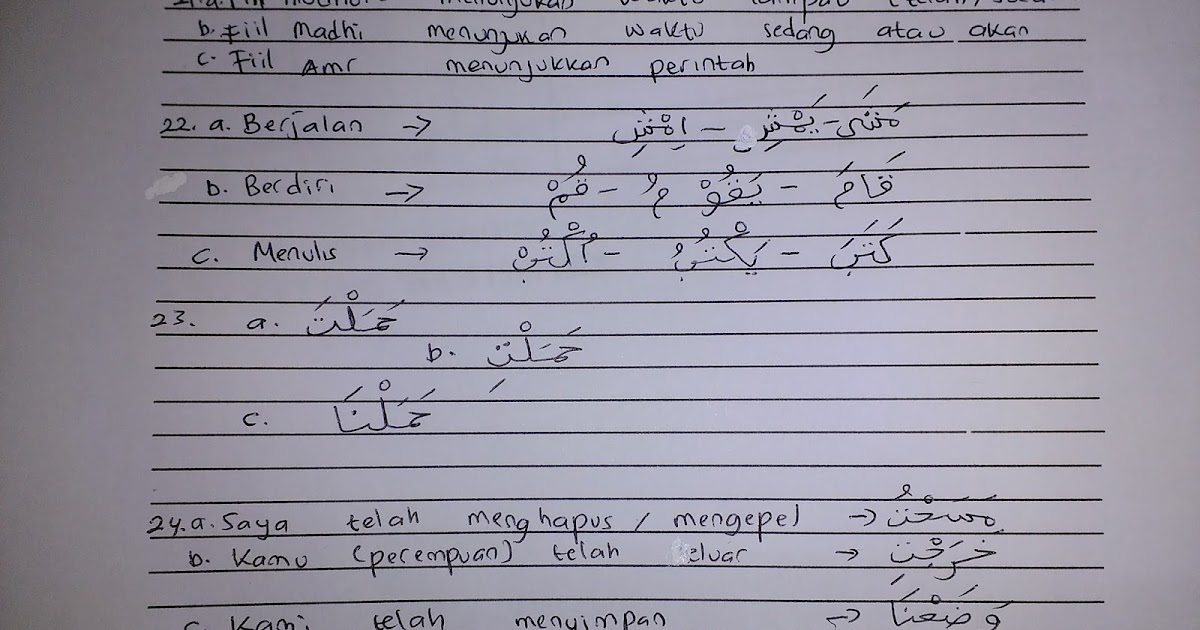 menunjukan waktu
b. Fiil Madhi menunjukan waktu sedang atau akan
c. Fiil Amr menunjukkan perintah
22. a. Berjalan → مَشَى - يَمْشِي - اِمْشِ
b. Berdiri → قَامَ - يَقُوْمُ - قُمْ
c. Menulis → كَتَبَ - يَكْتُبُ - اُكْتُبْ
23. a. حَمَلْتَ
b. حَمَلْتِ
c. حَمَلْنَا
24. a. Saya telah menghapus / mengepel → مَسَحْتُ
b. Kamu (perempuan) telah keluar → خَرَجْتِ
c. Kami telah menyimpan → وَضَعْنَا